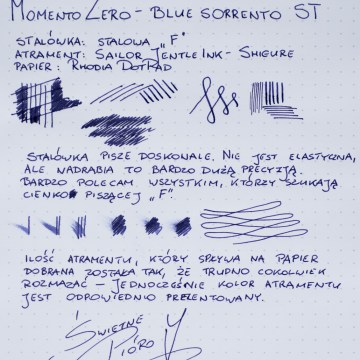 Momento Zero - Blue Sorrento ST
Stalówka: stalowa „F"
Atrament: Sailor Jentle Ink - Shigure
Papier: Rhodia DotPad
Stalówka pisze doskonale. Nie jest elastyczna,
ale nadrabia to bardzo dużą precyzją.
Bardzo polecam wszystkim, którzy szukają
cienko piszącej „F".
Ilość atramentu, który spływa na papier
dobrana została tak, że trudno cokolwiek
rozmazać - jednocześnie kolor atramentu
jest odpowiednio prezentowany.
Świetne
Pióro